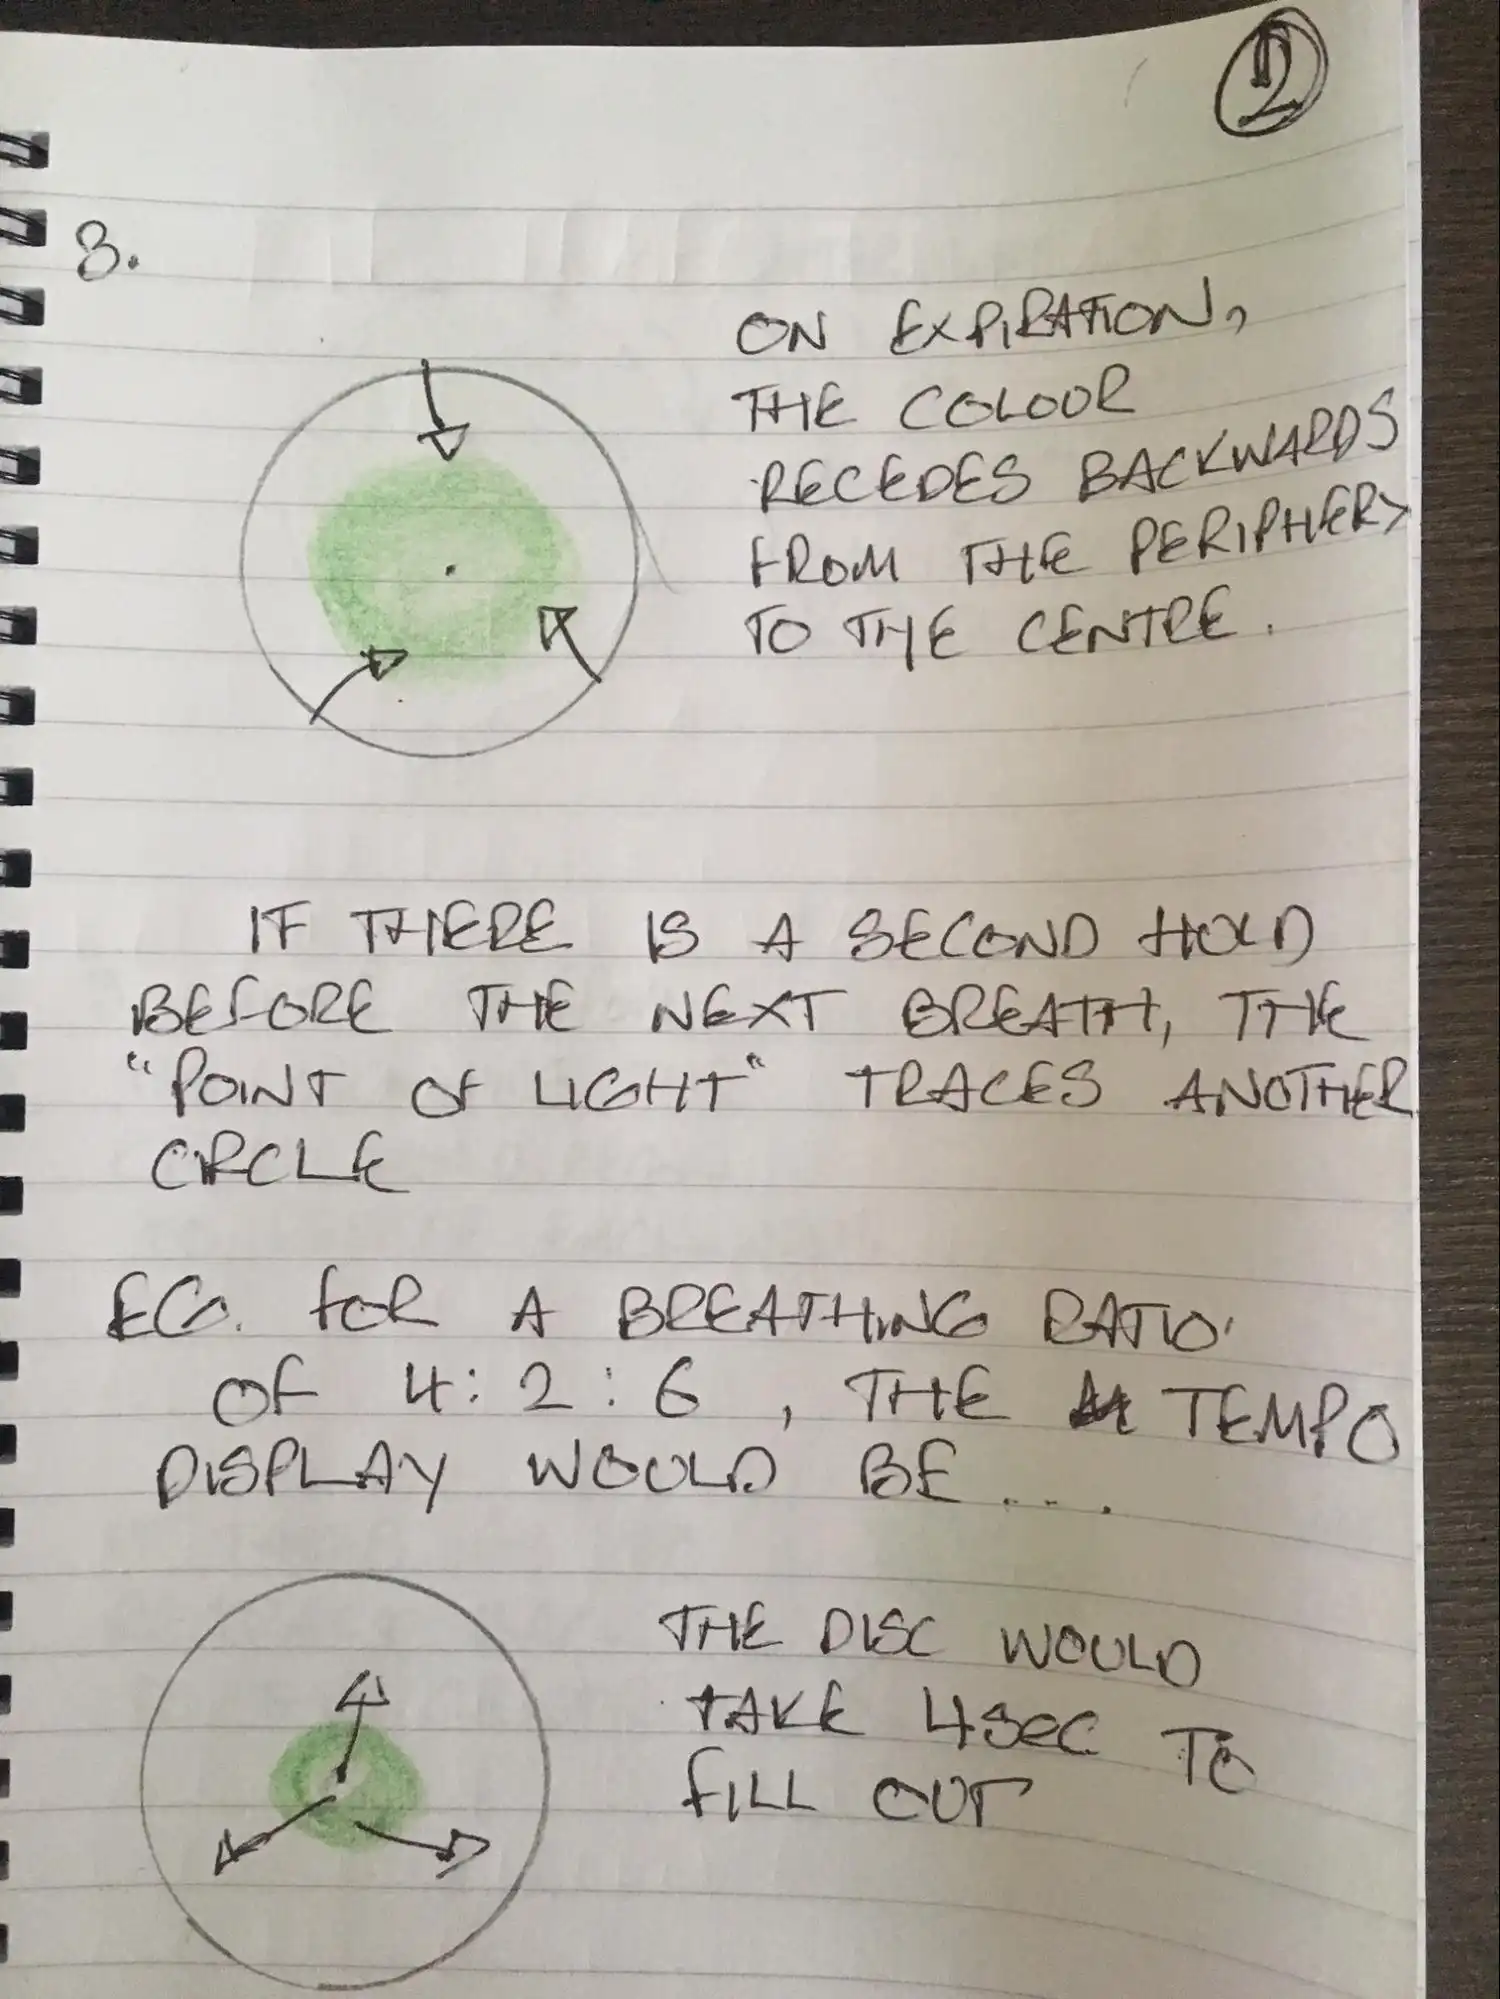 2
3.
ON EXPIRATION,
THE COLOUR
RECEDES BACKWARDS
FROM THE PERIPHERY
TO THE CENTRE.
IF THERE IS A SECOND HOLD
BEFORE THE NEXT BREATH, THE
"POINT OF LIGHT" TRACES ANOTHER
CIRCLE
EG. FOR A BREATHING RATIO
OF 4:2:6, THE TEMPO
DISPLAY WOULD BE....
THE DISC WOULD
TAKE 4SEC TO
FILL OUT